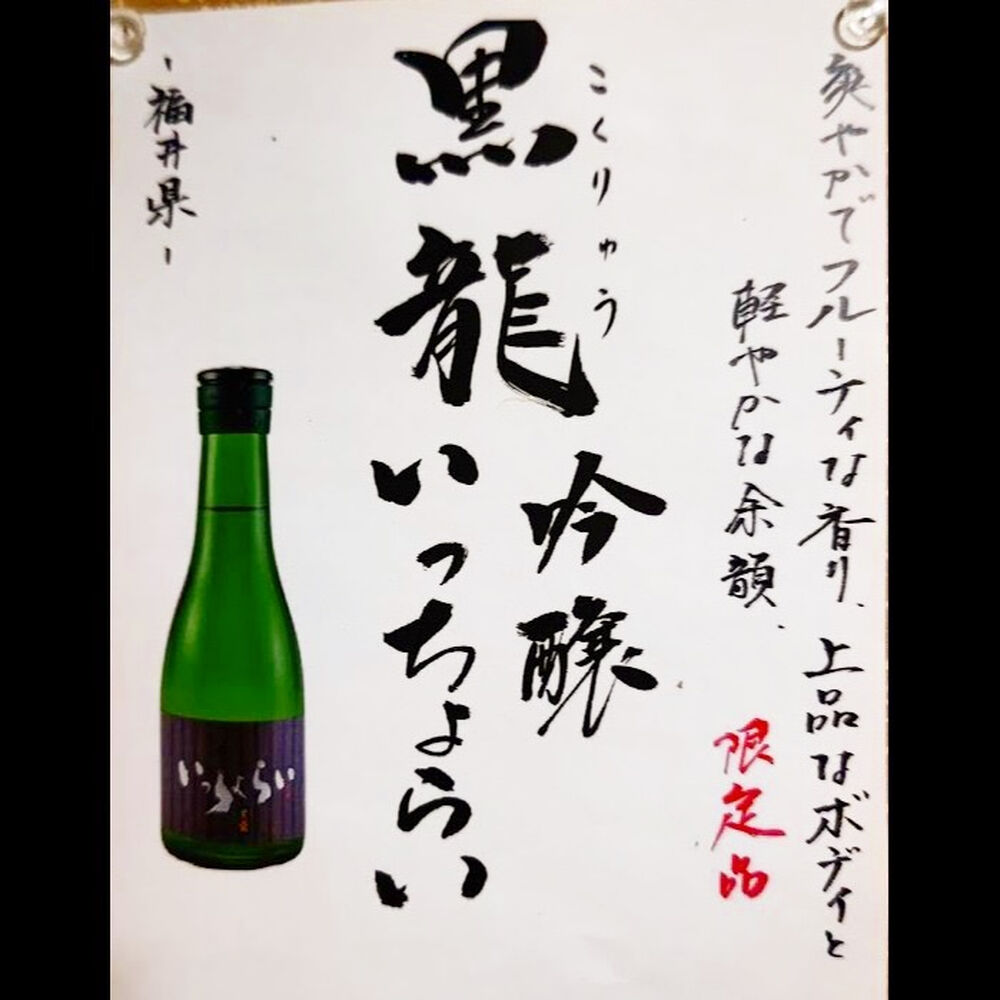 爽やかでフルーティな香り、上品なボディと
軽やかな余韻、
限定品
こくりゅう
吟醸
黒龍いっちょらい
-福井県-
いっちょらい